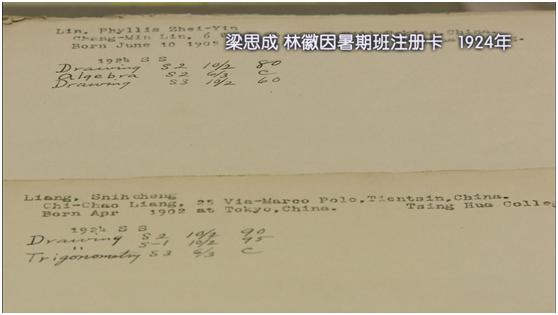 梁思成 林徽因暑期班注册卡 1924年
Lin, Phyllis Zhei-Yin
Cheng-Min Lin, 6
Born June 10 1905
1924 S S
Drawing S2 10/2 80
Algebra S2 6/3 C
Drawing S3 10/2 60
Liang, Snihcheng
Chi-Chao Liang, 25 Via-Marco Polo,Tientsin,China.
Born Apr 1902 at Tokyo,China. Tsing Hua Colleg
1924 S S
Drawing S2 10/2 90
" S-1 10/2 95
Trigonometry S3 6/3 C